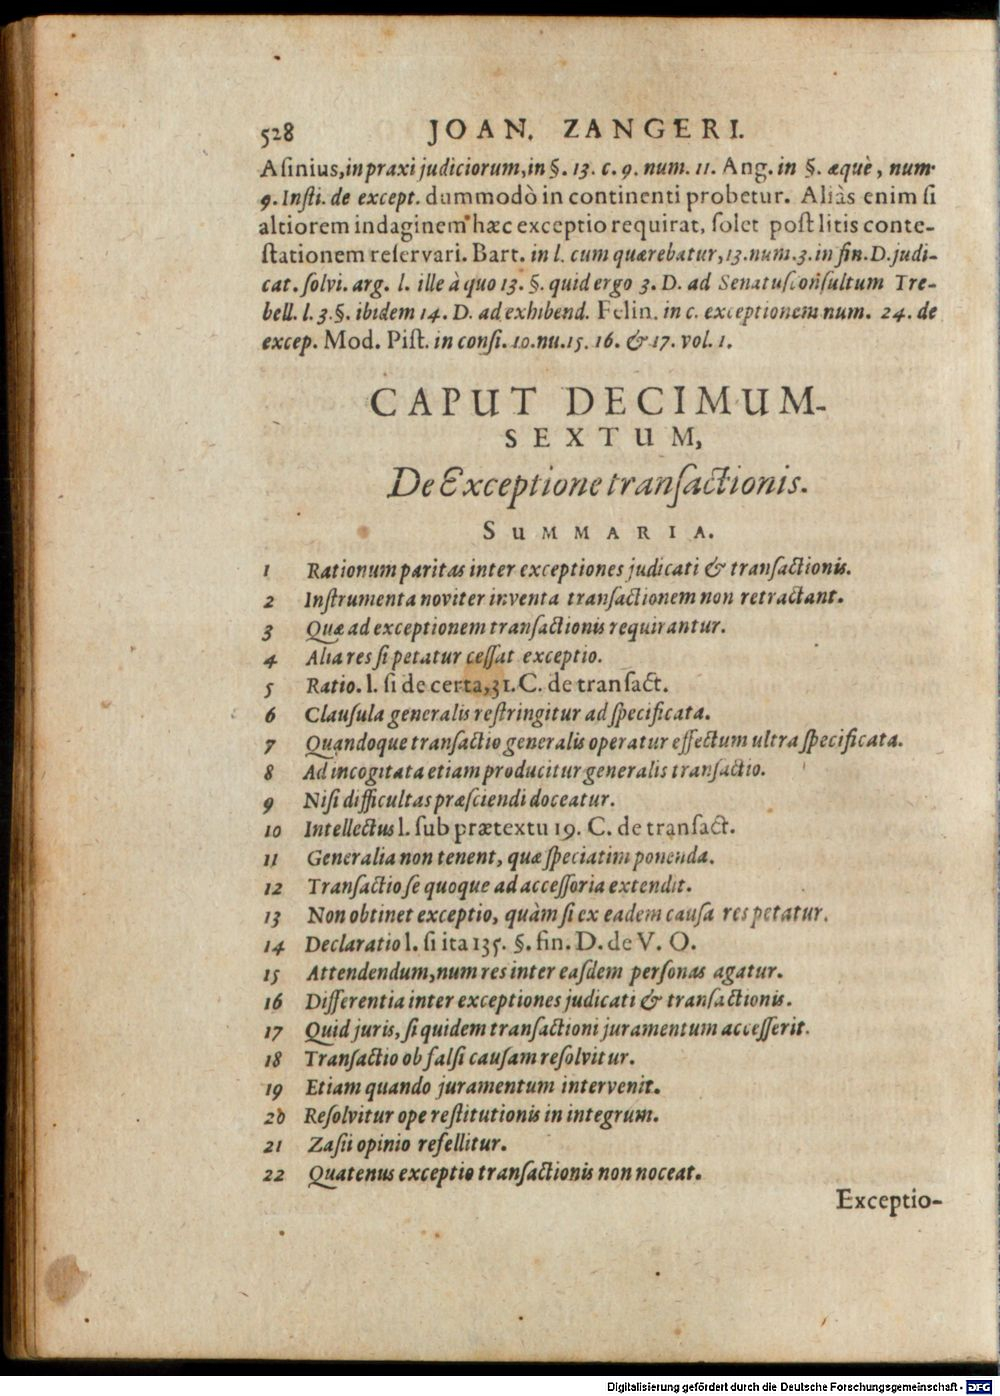 528 JOAN. ZANGERI.
Asinius, in praxi judiciorum, in §. 13. c. 9. num. 11. Ang. in §. æquè, num.
9. Insti. de except. dummodò in continenti probetur. Aliàs enim si
altiorem indaginem hæc exceptio requirat, solet post litis conte-
stationem reservari. Bart. in l. cum quærebatur, 13. num. 3. in fin. D. judi-
cat. solvi. arg. l. ille à quo 13. §. quid ergo 3. D. ad Senatusconsultum Tre-
bell. l. 3. §. ibidem 14. D. ad exhibend. Felin. in c. exceptionem num. 24. de
excep. Mod. Pist. in consi. 10. nu. 15. 16. & 17. vol. 1.
CAPUT DECIMUM-
SEXTUM,
De Exceptione transactionis.
SUMMARIA.
1 Rationum paritas inter exceptiones judicati & transactionis.
2 Instrumenta noviter inventa transactionem non retractant.
3 Quæ ad exceptionem transactionis requirantur.
4 Alia res si petatur cessat exceptio.
5 Ratio. l. si de certa, 31. C. de transact.
6 Clausula generalis restringitur ad specificata.
7 Quandoque transactio generalis operatur effectum ultra specificata.
8 Ad incogitata etiam producitur generalis transactio.
9 Nisi difficultas præsciendi doceatur.
10 Intellectus l. sub prætextu 19. C. de transact.
11 Generalia non tenent, quæ speciatim ponenda.
12 Transactio se quoque ad accessoria extendit.
13 Non obtinet exceptio, quàm si ex eadem causa res petatur.
14 Declaratio l. si ita 135. §. fin. D. de V. O.
15 Attendendum, num res inter easdem personas agatur.
16 Differentia inter exceptiones judicati & transactionis.
17 Quid juris, si quidem transactioni juramentum accesserit.
18 Transactio ob falsi causam resolvitur.
19 Etiam quando juramentum intervenit.
20 Resolvitur ope restitutionis in integrum.
21 Zasii opinio refellitur.
22 Quatenus exceptio transactionis non noceat.
Exceptio-
Digitalisierung gefördert durch die Deutsche Forschungsgemeinschaft - DFG